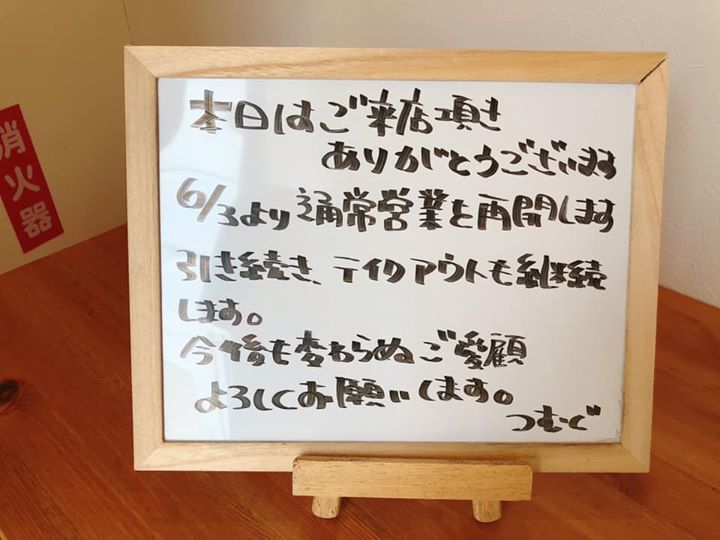 消火器
本日はご来店頂き
ありがとうございます
6/3より通常営業を再開します
引き続き、テイクアウトも継続
します。
今後も変わらぬご愛顧
よろしくお願いします。
つむぐ